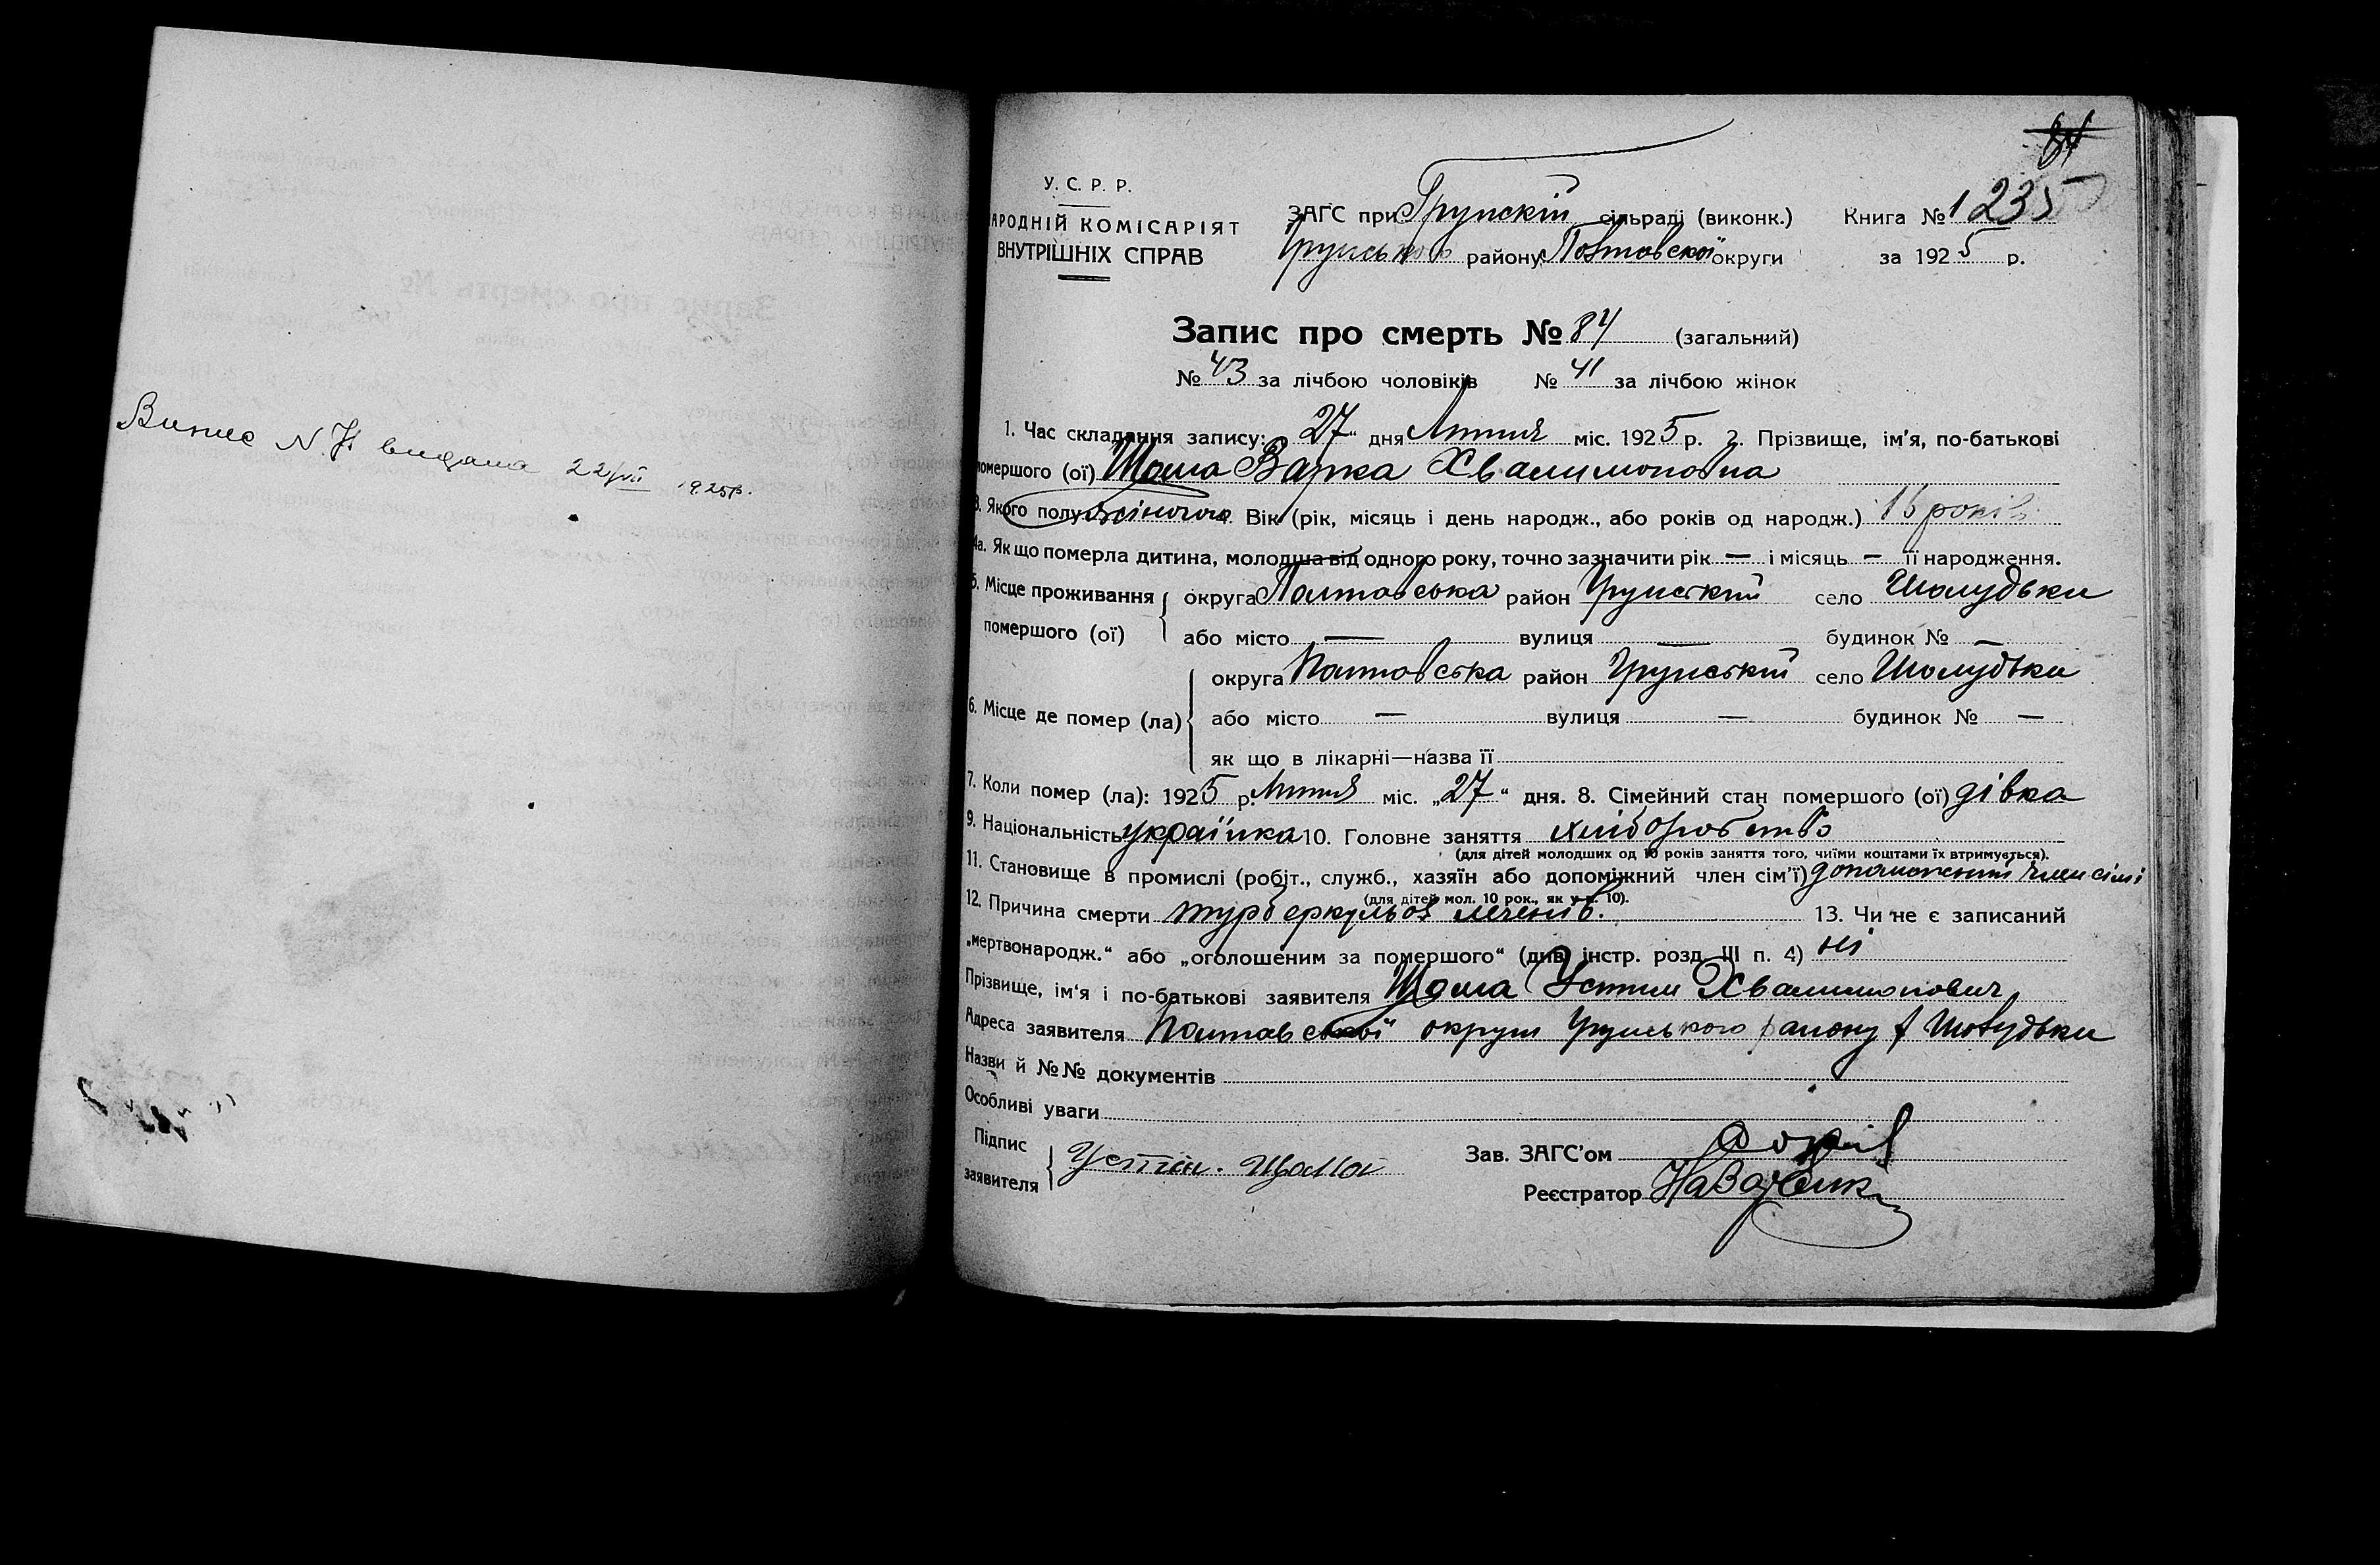 Випис N. видана 22/VII 1925р.
84
У. С. Р. Р.
НАРОДНІЙ КОМІСАРІЯТ
ВНУТРІШНІХ СПРАВ
ЗАГС при Грунскій сільраді (виконк.) Книга № 1 235
Грунського району Полтавскої округи за 1925 р.
Запис про смерть № 84 (загальний)
№ 43 за лічбою чоловіків № 41 за лічбою жінок
1. Час складання запису: 27" дня Липня міс. 1925 р. 2. Прізвище, ім'я, по-батькові
помершого (ої) Шома Варка Хвалимоновна
3. Якого полу жіночого. Вік (рік, місяць і день народж., або років од народж.) 16 років
4а. Як що померла дитина, молодша від одного року, точно зазначити рік — і місяць — її народження.
5. Місце проживання помершого (ої) округа Полтавська район Грунський село Шолудьки
або місто — вулиця — будинок № —
6. Місце де помер (ла) округа Полтавська район Грунській село Шолудьки
або місто — вулиця — будинок № —
як що в лікарні—назва її
7. Коли помер (ла): 1925 р. Липня міс. „27" дня. 8. Сімейний стан помершого (ої) дівка
9. Національність українка 10. Головне заняття хліборобство
(для дітей молодших од 10 років заняття того, чиїми коштами їх втримується).
11. Становище в промислі (робіт., служб., хазяїн або допоміжний член сім'ї) допоможний член сімі
(для дітей мол. 10 рок., як у п. 10).
12. Причина смерти турберкульоз легенів. 13. Чи не є записаний
„мертвонародж." або „оголошеним за помершого" (див. інстр. розд. III п. 4) ні
Прізвище, ім'я і по-батькові заявителя Шома Устин Хвалимонович
Адреса заявителя Полтавської округи Грунського району Шолудьки
Назви й №№ документів
Особливі уваги
Підпис заявителя Устін. Шома
Зав. ЗАГС'ом
Реєстратор